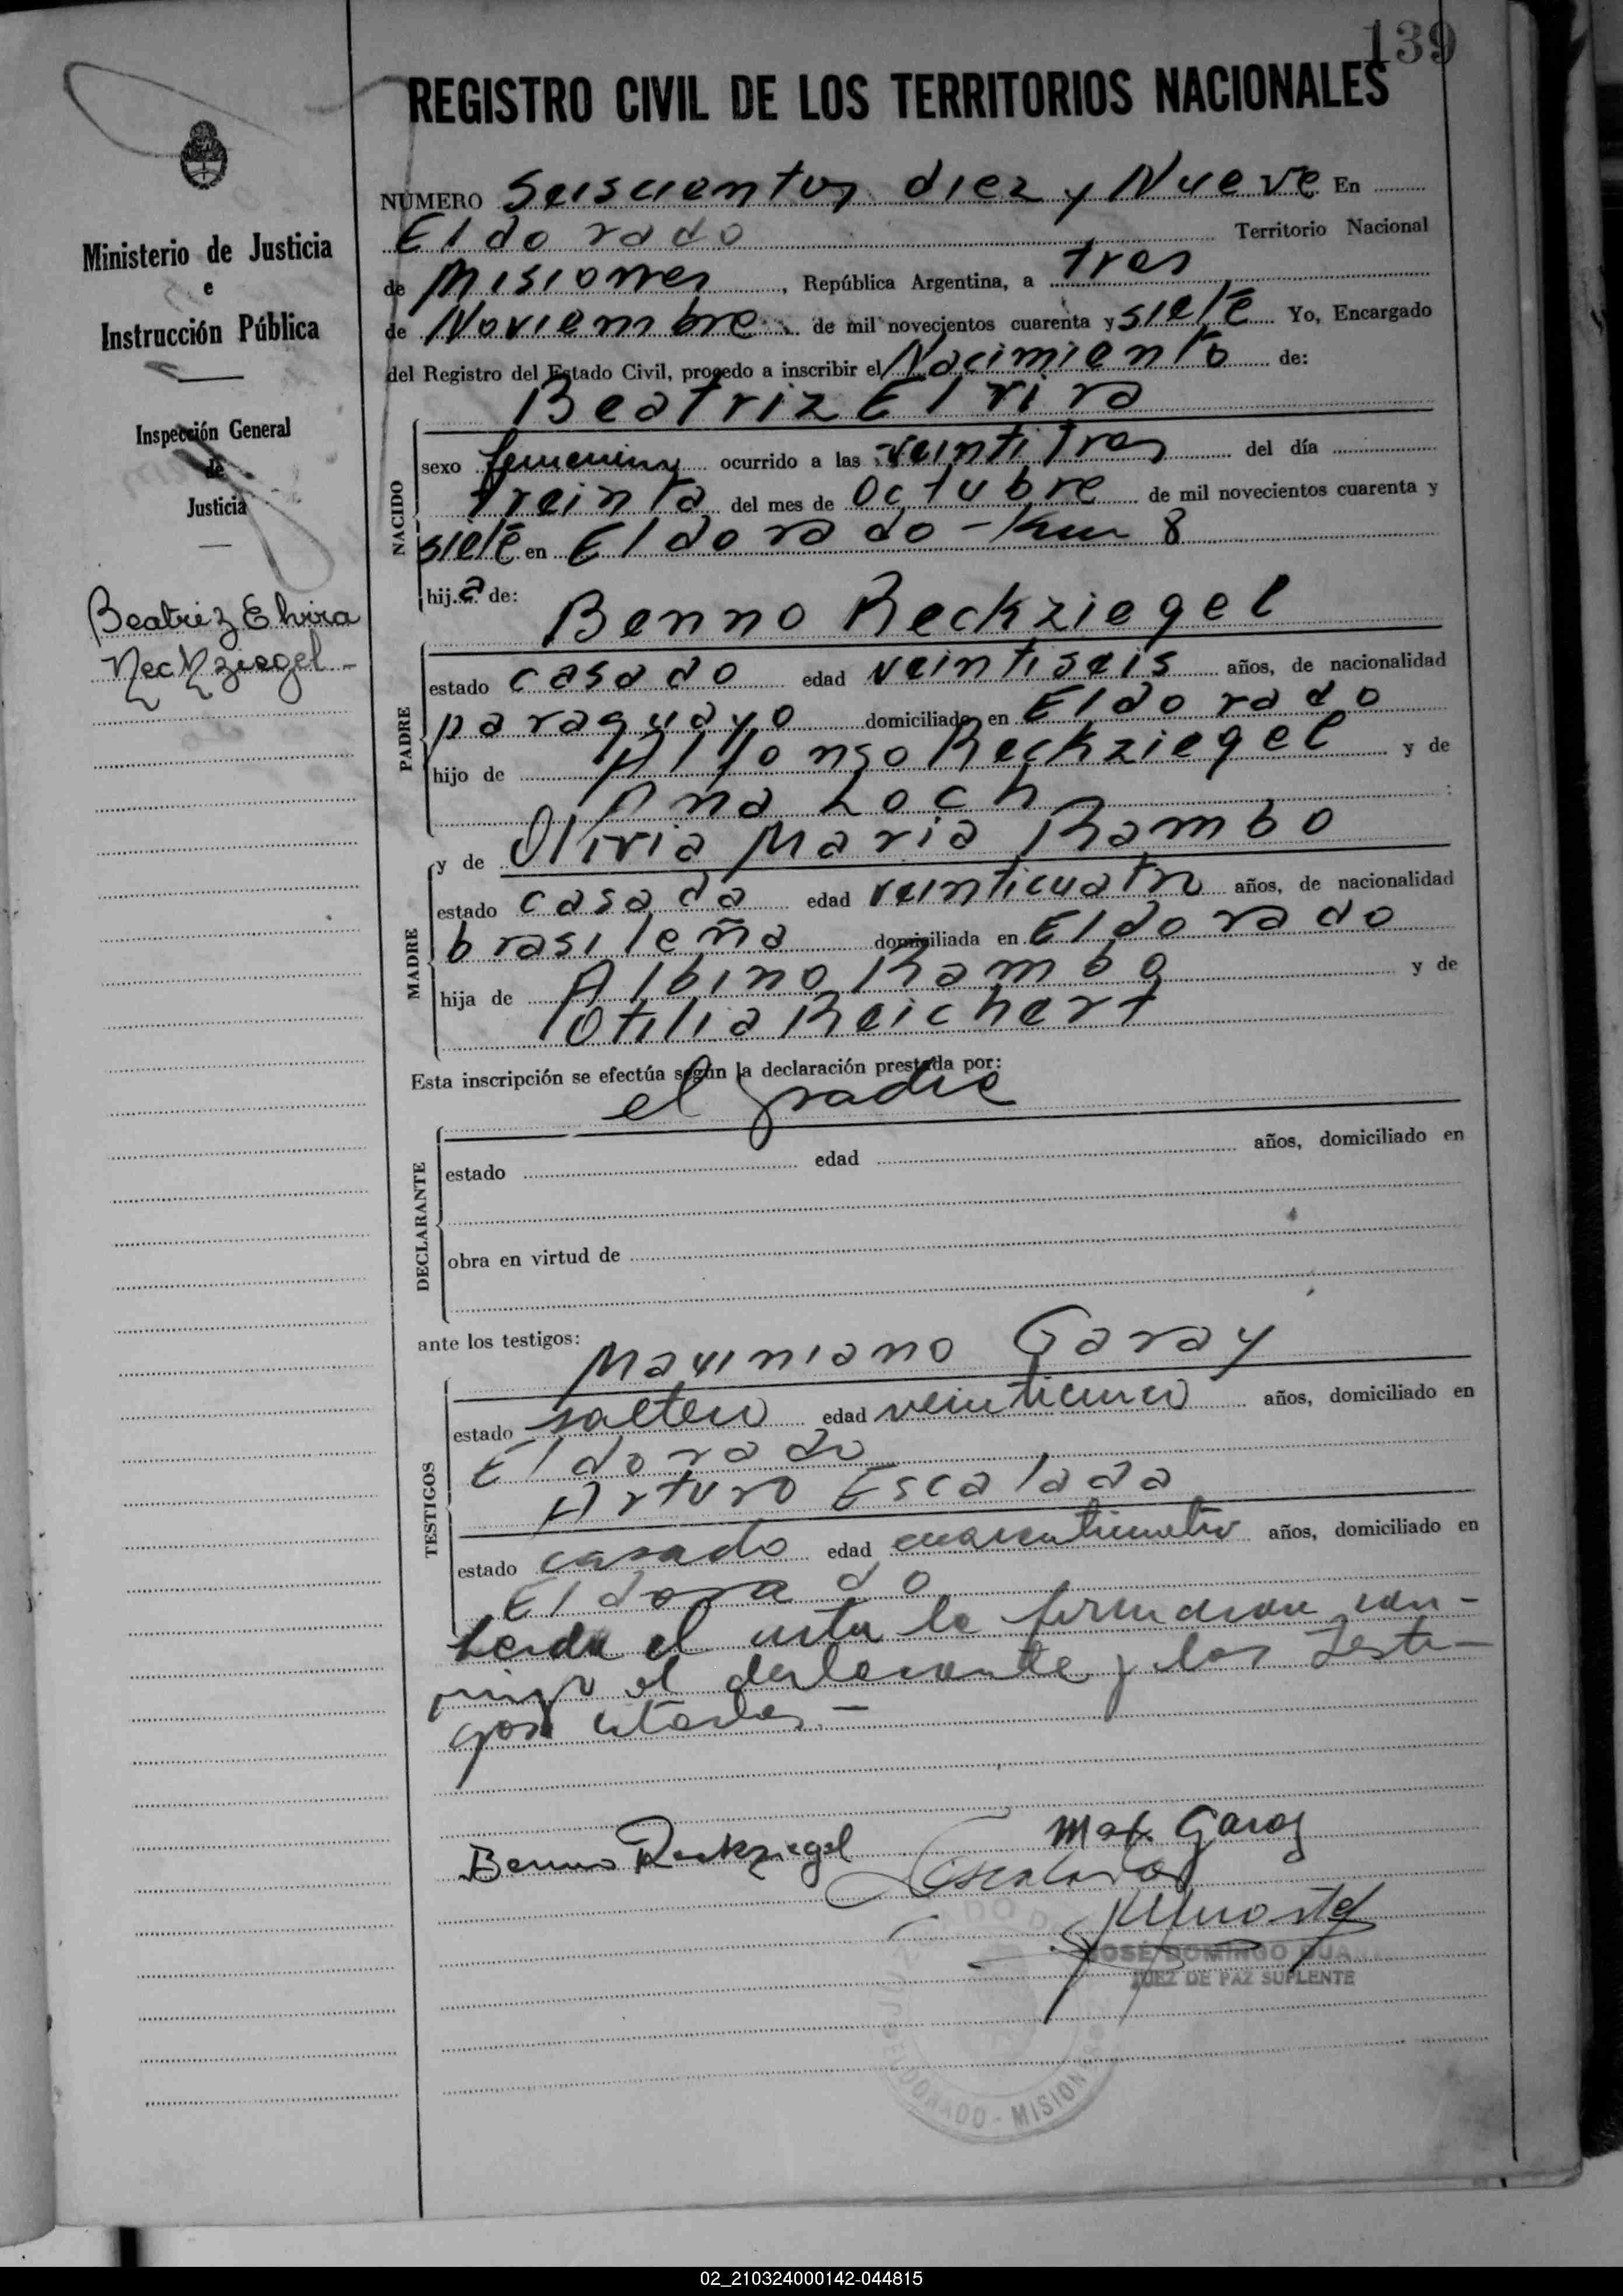 139
REGISTRO CIVIL DE LOS TERRITORIOS NACIONALES
Ministerio de Justicia
e
Instrucción Pública
Inspección General
de
Justicia
Beatriz Elvira
Reckziegel -
NÚMERO Seiscientos diez y Nueve En
Eldorado Territorio Nacional
de Misiones, República Argentina, a tres
de Noviembre de mil novecientos cuarenta y siete Yo, Encargado
del Registro del Estado Civil, procedo a inscribir el Nacimiento de:
Beatriz Elvira
NACIDO
sexo femenino ocurrido a las veintitres del día
treinta del mes de Octubre de mil novecientos cuarenta y
siete en Eldorado - Km 8
hij a de:
Benno Reckziegel
PADRE
estado casado edad veintiseis años, de nacionalidad
paraguayo domiciliado en Eldorado
hijo de Alfonso Reckziegel y de
Ana Loch
y de Olivia Maria Rambo
MADRE
estado casada edad veinticuatro años, de nacionalidad
brasileña domiciliada en Eldorado
hija de Albino Rambo y de
Otilia Reichert
Esta inscripción se efectúa según la declaración prestada por:
el padre
DECLARANTE
estado edad años, domiciliado en
obra en virtud de
ante los testigos:
Maximiano Garay
TESTIGOS
estado soltero edad veinticinco años, domiciliado en
Eldorado
Arturo Escalada
estado casado edad años, domiciliado en
Eldorado
Leida el acta la firmaron con-
migo el declarante y los testi-
gos citados. -
Benno Reckziegel
Max. Garay
Escalada
JOSÉ DOMINGO DUA
JUEZ DE PAZ SUPLENTE
ELDORADO - MISIONES
02_210324000142-044815